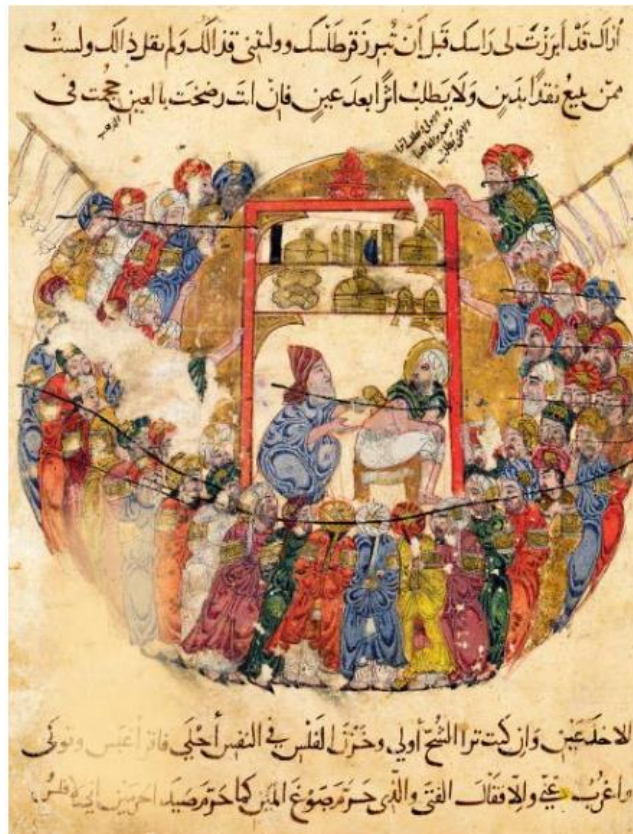 أراك قد أبرزت لى راسك قبل أن تبرز قرطاسك ووليتنى قذالك ولم تقل ذالك ولست
ممن يبيع نقدا بدين ولا يطلب اثرا بعد عين فان انت رضخت بالعين حجمت فى
الاخدعين وان كنت ترا الشح أولى وخزن الفلس فى النفس أحلى فاقرأ عبس وتولى
واغرب عنى والا فقال الفتى والذى حرم صوغ المين كما حرم صيد الحرمين انى لافلس